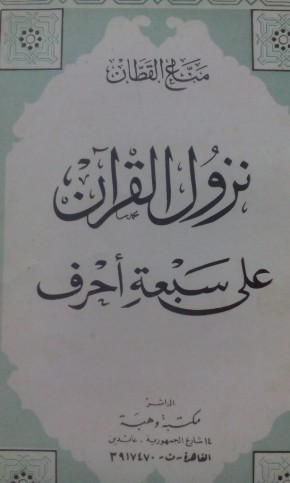 مناع القطان
نزول القرآن
على سبعة أحرف
الناشر
مكتبة وهبة
١٤ شارع الجمهورية . عابدين
القاهرة - ت : ٣٩١٧٤٧٠